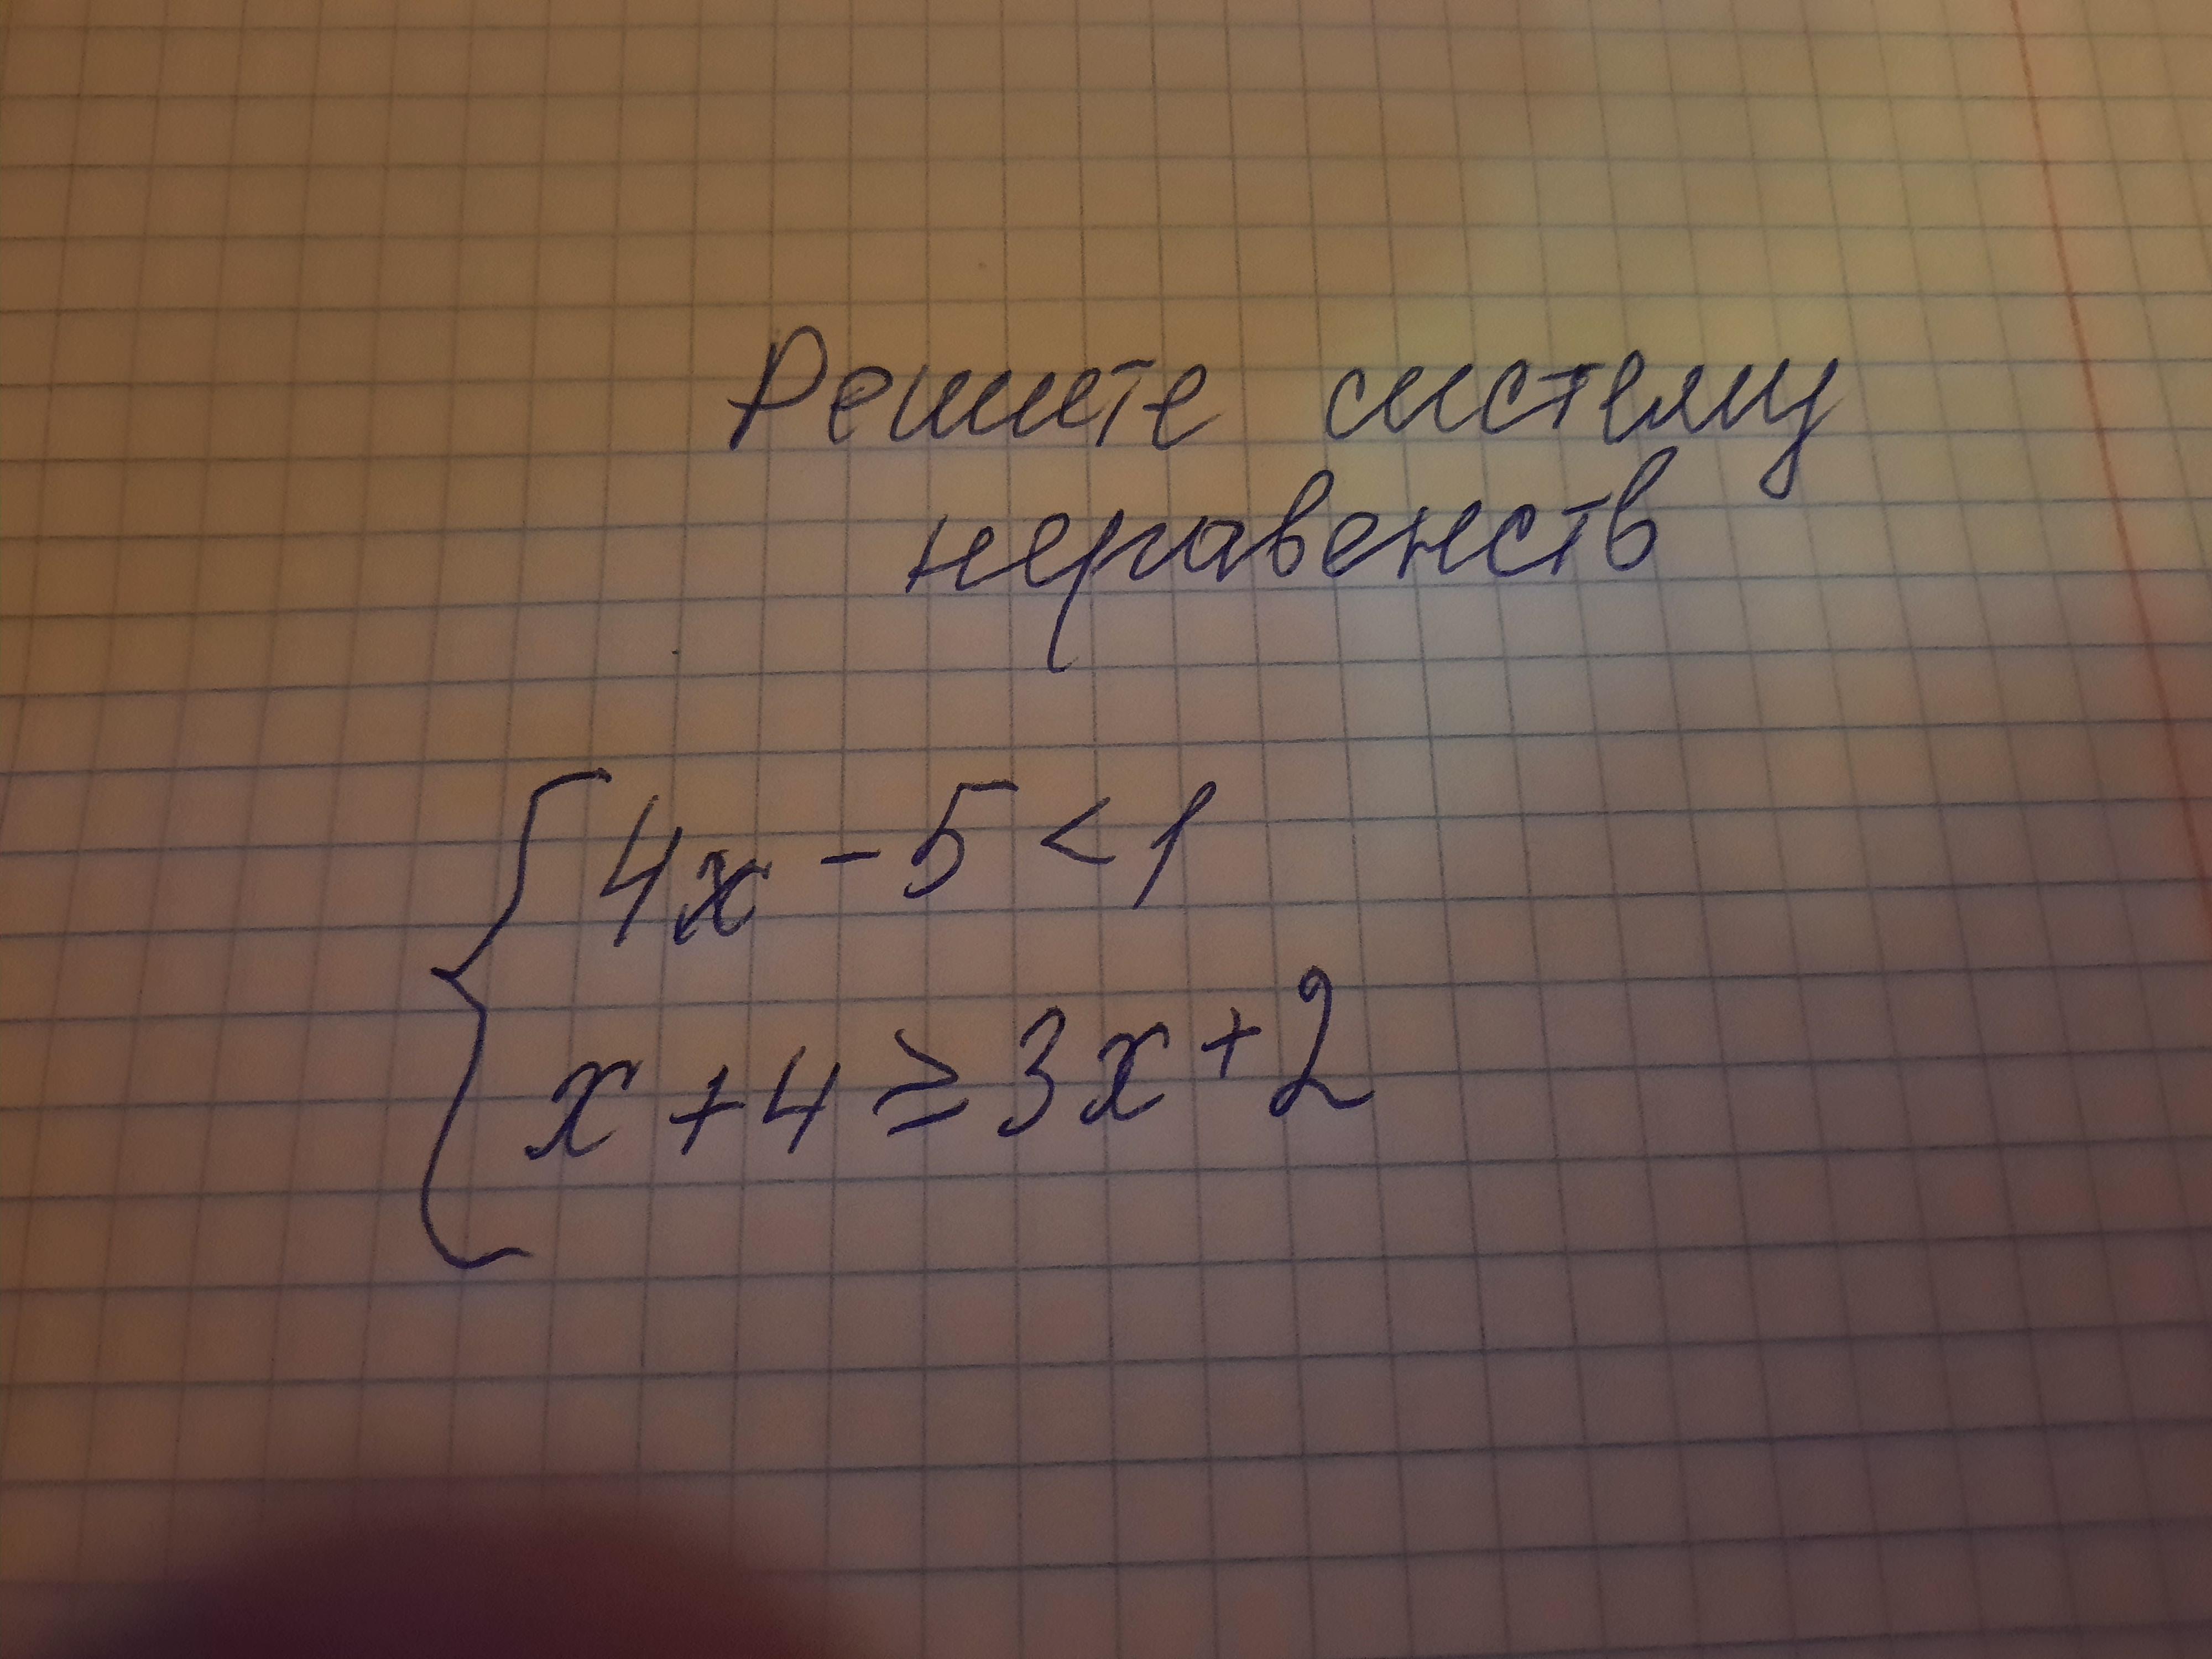 Решите систему
неравенств
4x - 5 < 1
x + 4 ≥ 3x + 2